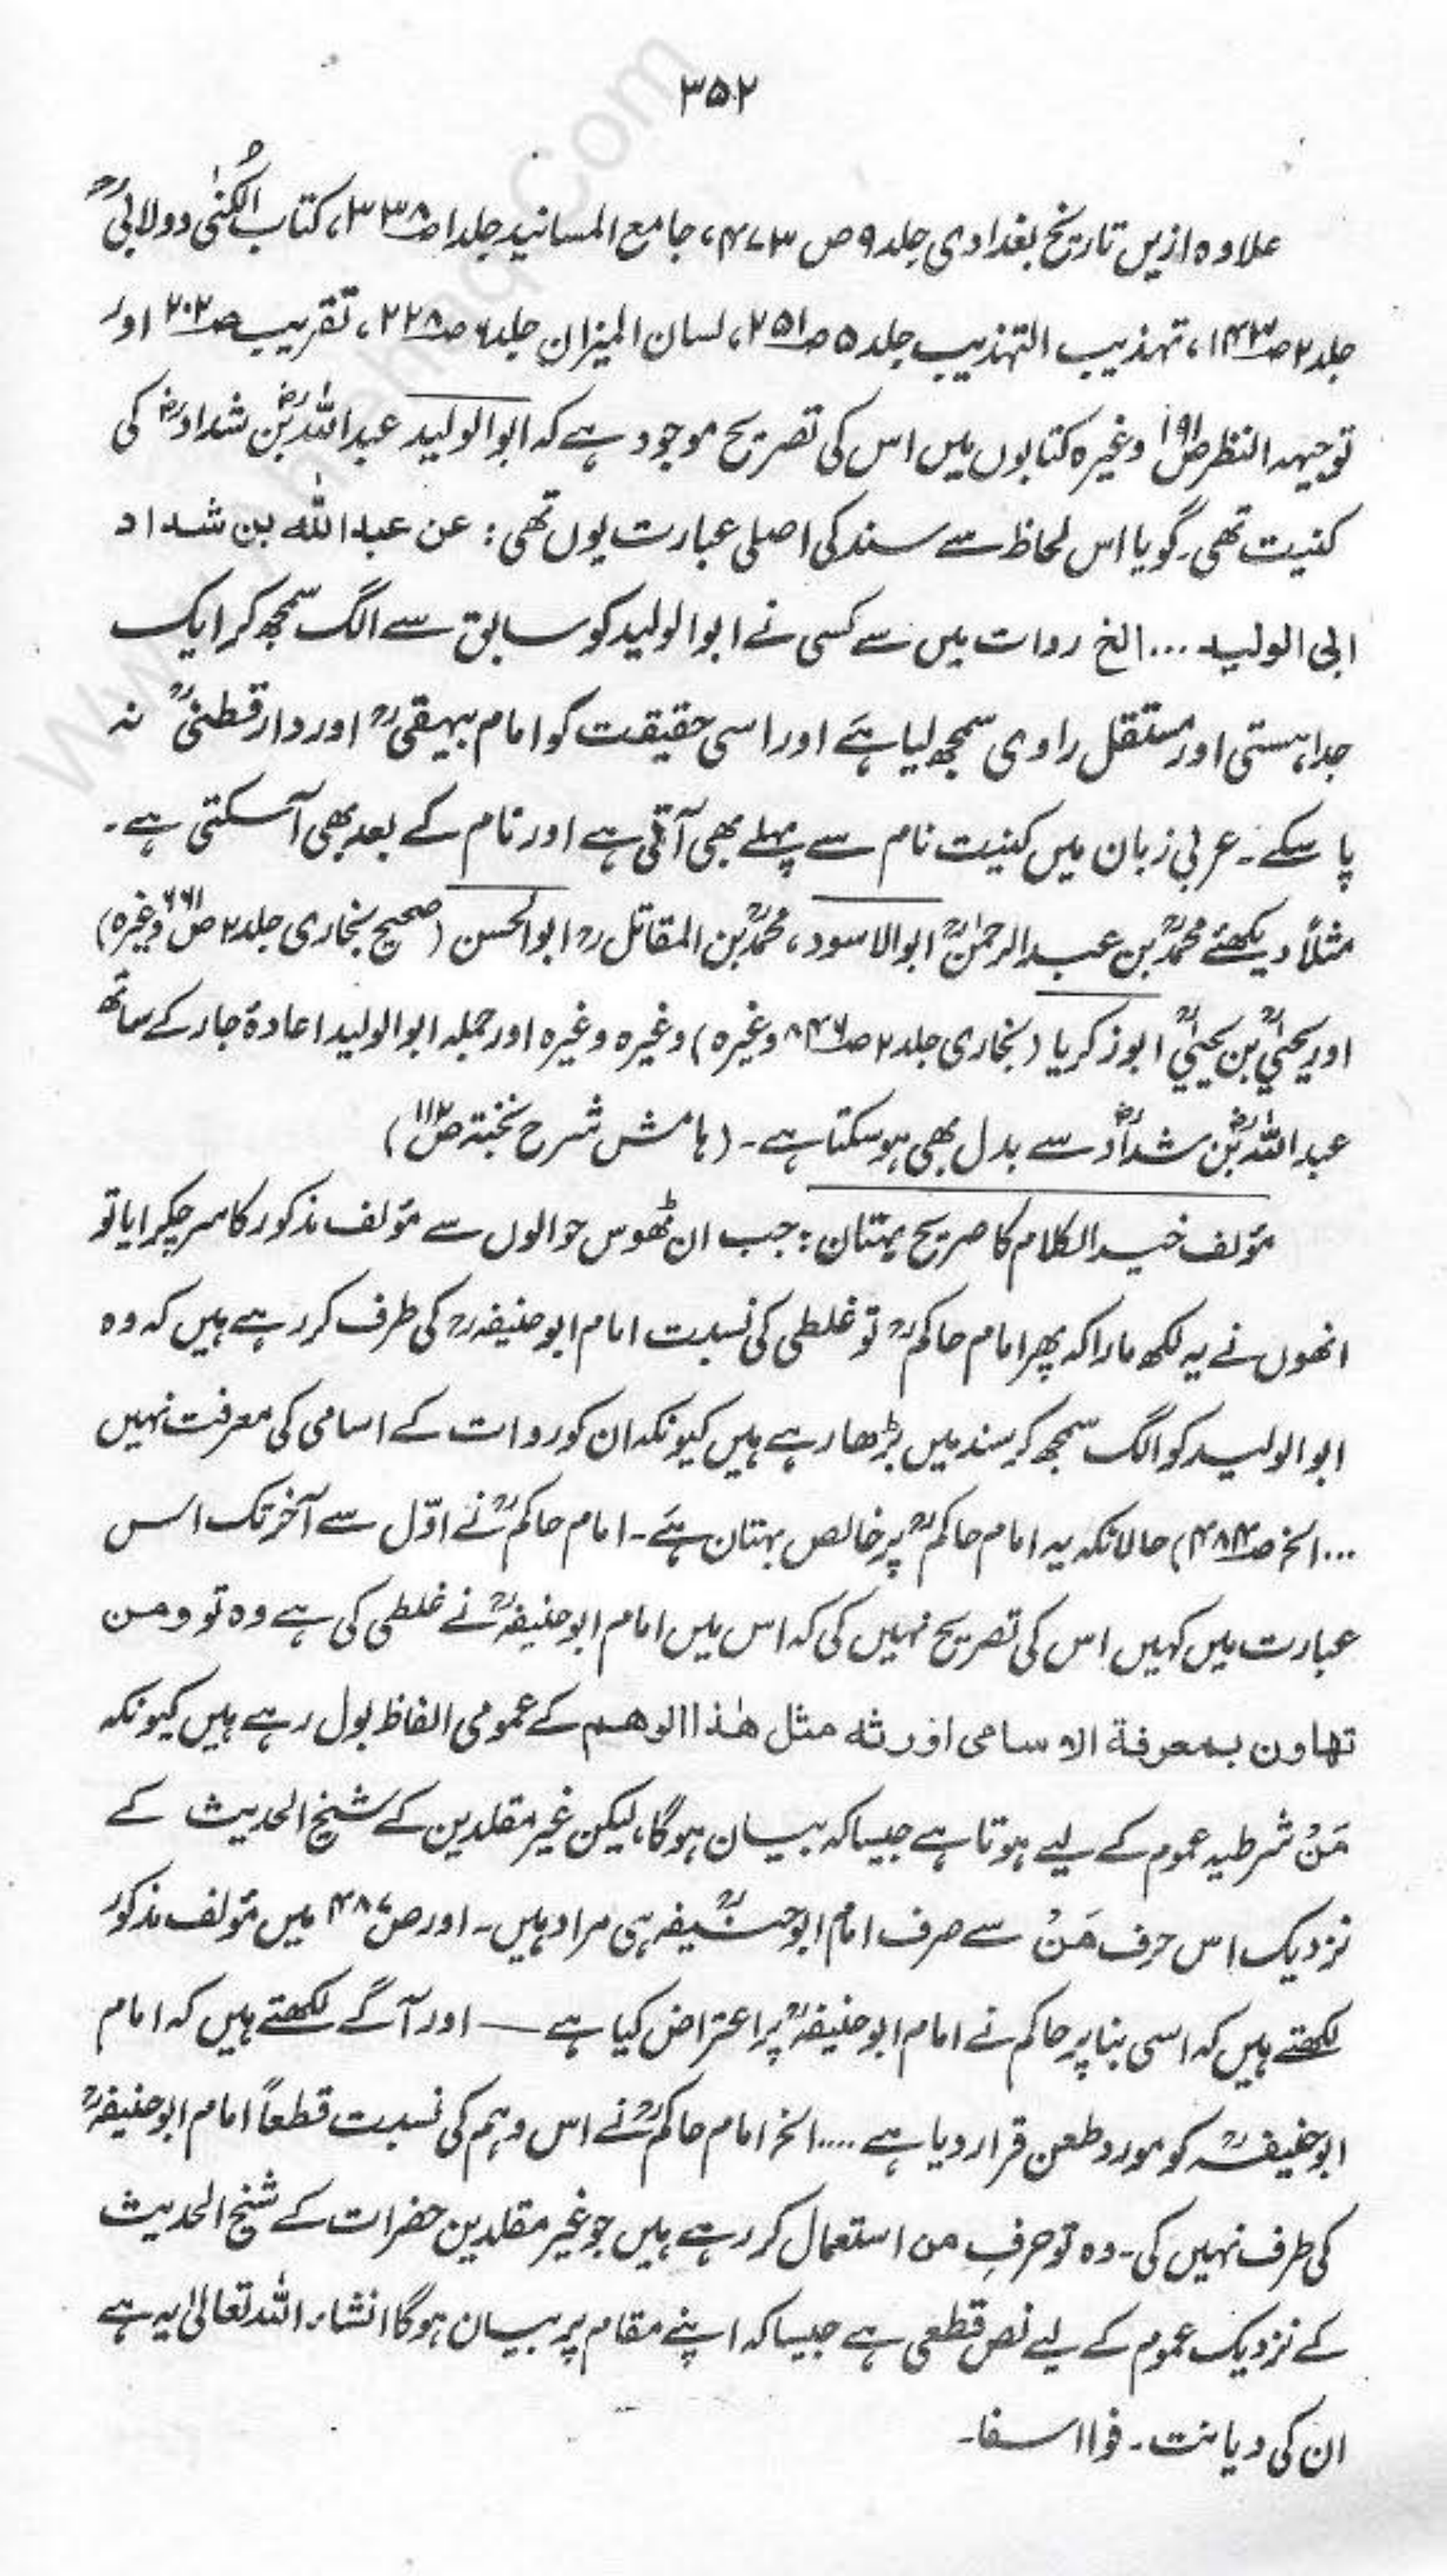 ۳۵۲
علاوہ ازیں تاریخ بغدادی جلد ۹ ص ۴۷۳، جامع المسانید جلد ۱ ص ۳۳۸، کتاب الکُنٰی دولابیؒ
جلد ۲ ص ۱۴۳، تہذیب التہذیب جلد ۵ ص ۲۵۱، لسان المیزان جلد ۶ ص ۲۲۸، تقریب ص ۲۰۲ اور
توجیہہ النظر ص ۱۹۱ وغیرہ کتابوں میں اس کی تصریح موجود ہے کہ ابو الولید عبد اللہؓ بن شدادؓ کی
کنیت تھی۔ گویا اس لحاظ سے سند کی اصلی عبارت یوں تھی: عن عبد اللہ بن شداد
ابی الولید ...الخ روات میں سے کسی نے ابو الولید کو سابق سے الگ سمجھ کر ایک
جدا ہستی اور مستقل راوی سمجھ لیا ہے اور اسی حقیقت کو امام بیہقیؒ اور دارقطنیؒ نہ
پا سکے۔ عربی زبان میں کنیت نام سے پہلے بھی آتی ہے اور نام کے بعد بھی آسکتی ہے۔
مثلاً دیکھئے محمدؒ بن عبد الرحمٰنؒ ابو الاسود، محمدؒ بن المقاتلؒ ابو الحسن (صحیح بخاری جلد ۲ ص ۶۶۱ وغیرہ)
اور یحییٰؒ بن یحییٰؒ ابو زکریا (بخاری جلد ۲ ص ۸۴۶ وغیرہ) وغیرہ وغیرہ اور جملہ ابو الولید اعادۂ جار کے ساتھ
عبد اللہؓ بن شدادؓ سے بدل بھی ہو سکتا ہے۔ (ہامش شرح نخبۃ ص ۱۱۲)
مؤلف خیر الکلام کا صریح بہتان: جب ان ٹھوس حوالوں سے مؤلف مذکور کا سر چکرایا تو
انھوں نے یہ لکھ مارا کہ پھر امام حاکمؒ تو غلطی کی نسبت امام ابو حنیفہؒ کی طرف کر رہے ہیں کہ وہ
ابو الولید کو الگ سمجھ کر سند میں بڑھا رہے ہیں کیونکہ ان کو روات کے اسامی کی معرفت نہیں
...الخ ص ۴۸۴) حالانکہ یہ امام حاکمؒ پر خالص بہتان ہے۔ امام حاکمؒ نے اوّل سے آخر تک اس
عبارت میں کہیں اس کی تصریح نہیں کی کہ اس میں امام ابو حنیفہؒ نے غلطی کی ہے وہ تو ومن
تھاون بمعرفة الاسامی اورثه مثل ھٰذا الوھم کے عمومی الفاظ بول رہے ہیں کیونکہ
مَنْ شرطیہ عموم کے لیے ہوتا ہے جیسا کہ بیان ہوگا، لیکن غیر مقلدین کے شیخ الحدیث کے
نزدیک اس حرف مَنْ سے صرف امام ابو حنیفہؒ ہی مراد ہیں۔ اور ص ۴۸۷ میں مؤلف مذکور
لکھتے ہیں کہ اسی بنا پر حاکم نے امام ابو حنیفہؒ پر اعتراض کیا ہے — اور آگے لکھتے ہیں کہ امام
ابو حنیفہؒ کو مورد طعن قرار دیا ہے ....الخ امام حاکمؒ نے اس وہم کی نسبت قطعاً امام ابو حنیفہؒ
کی طرف نہیں کی۔ وہ تو حرف من استعمال کر رہے ہیں جو غیر مقلدین حضرات کے شیخ الحدیث
کے نزدیک عموم کے لیے نص قطعی ہے جیسا کہ اپنے مقام پر بیان ہوگا انشاء اللہ تعالیٰ یہ ہے
ان کی دیانت۔ فوا اسفا۔